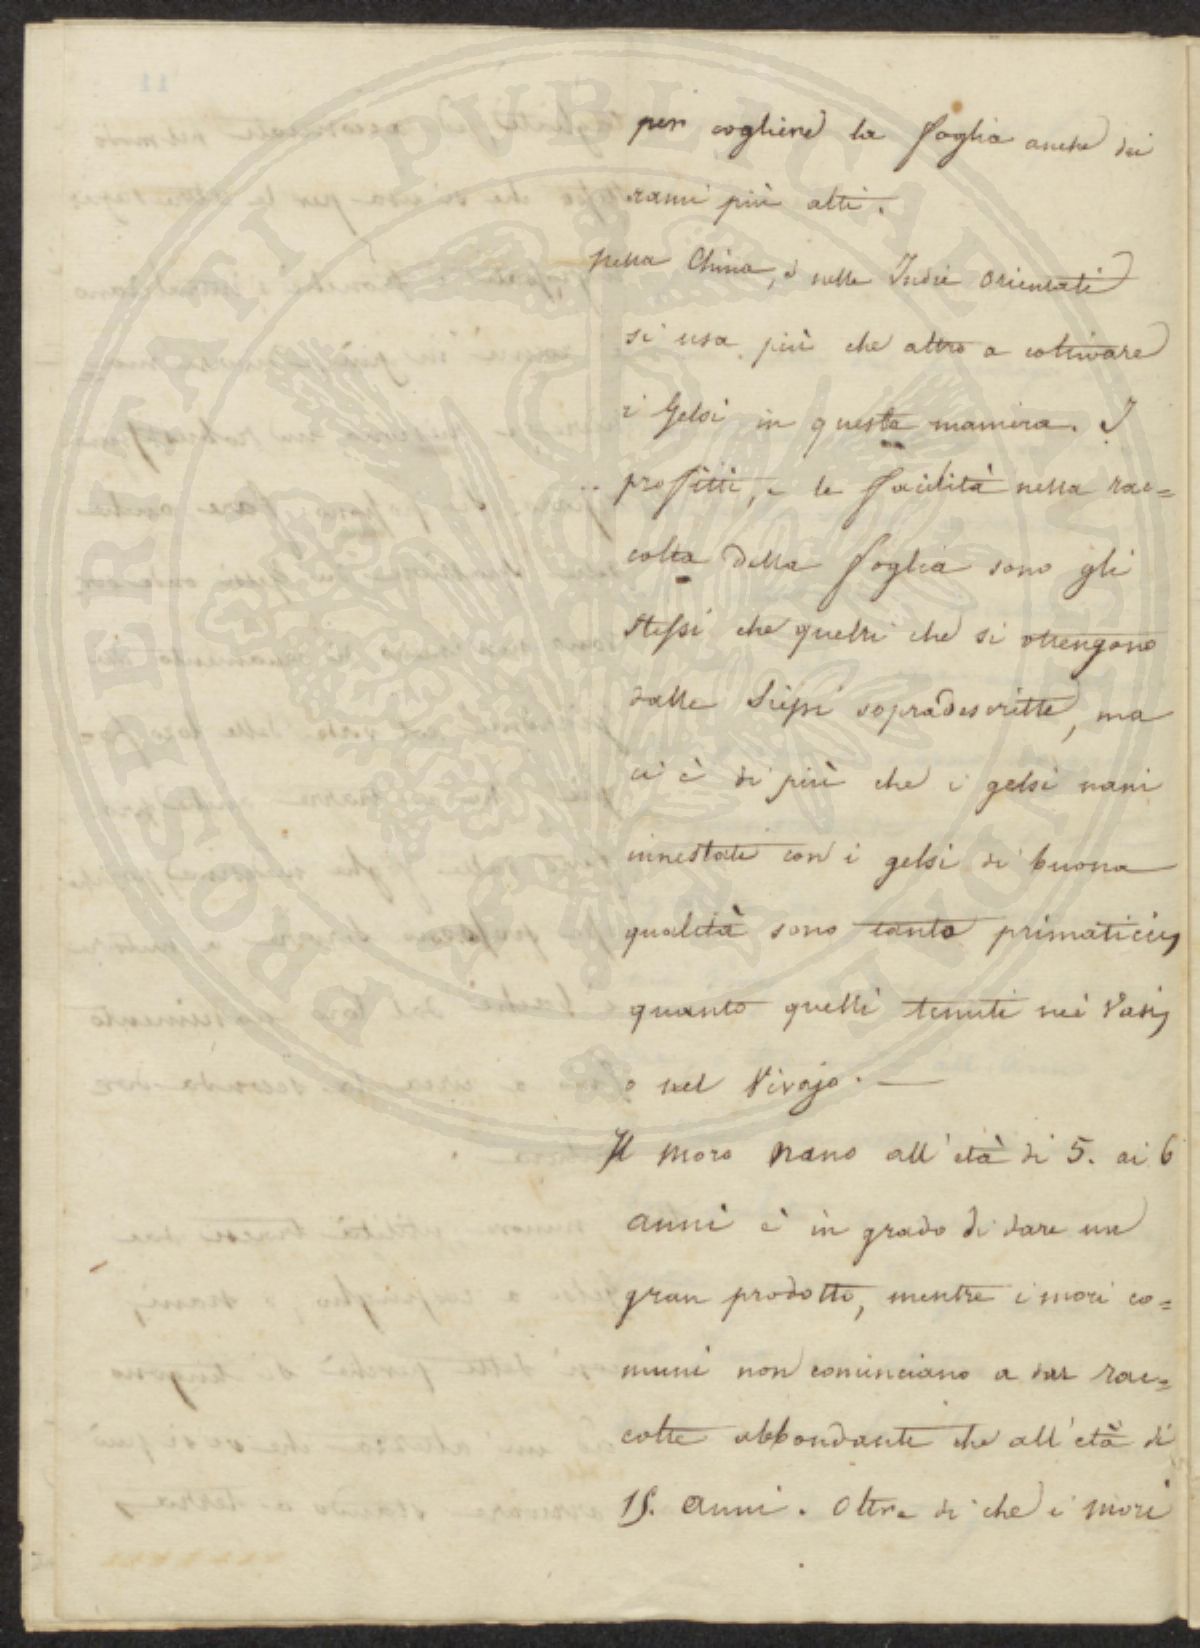 per cogliere la foglia anche dai
rami più alti.
Nella China, e nelle Indie Orientali
si usa più che altro a coltivare
i Gelsi in questa maniera. I
profitti, e le facilità nella rac=
colta della foglia sono gli
stessi che quelli che si ottengono
dalle Siepi sopradescritte, ma
ci è di più che i gelsi nani
innestati con i gelsi di buona
qualità sono tanto primaticci,
quanto quelli tenuti nei Vasi,
o nel Vivajo. —
Il moro Nano all'età di 5. ai 6
anni è in grado di dare un
gran prodotto, mentre i mori co=
muni non cominciano a dar rac=
colte abbondanti che all'età di
15. anni. Oltre di che i mori
PROSPERITATI PUBLICAE AUGENDAE